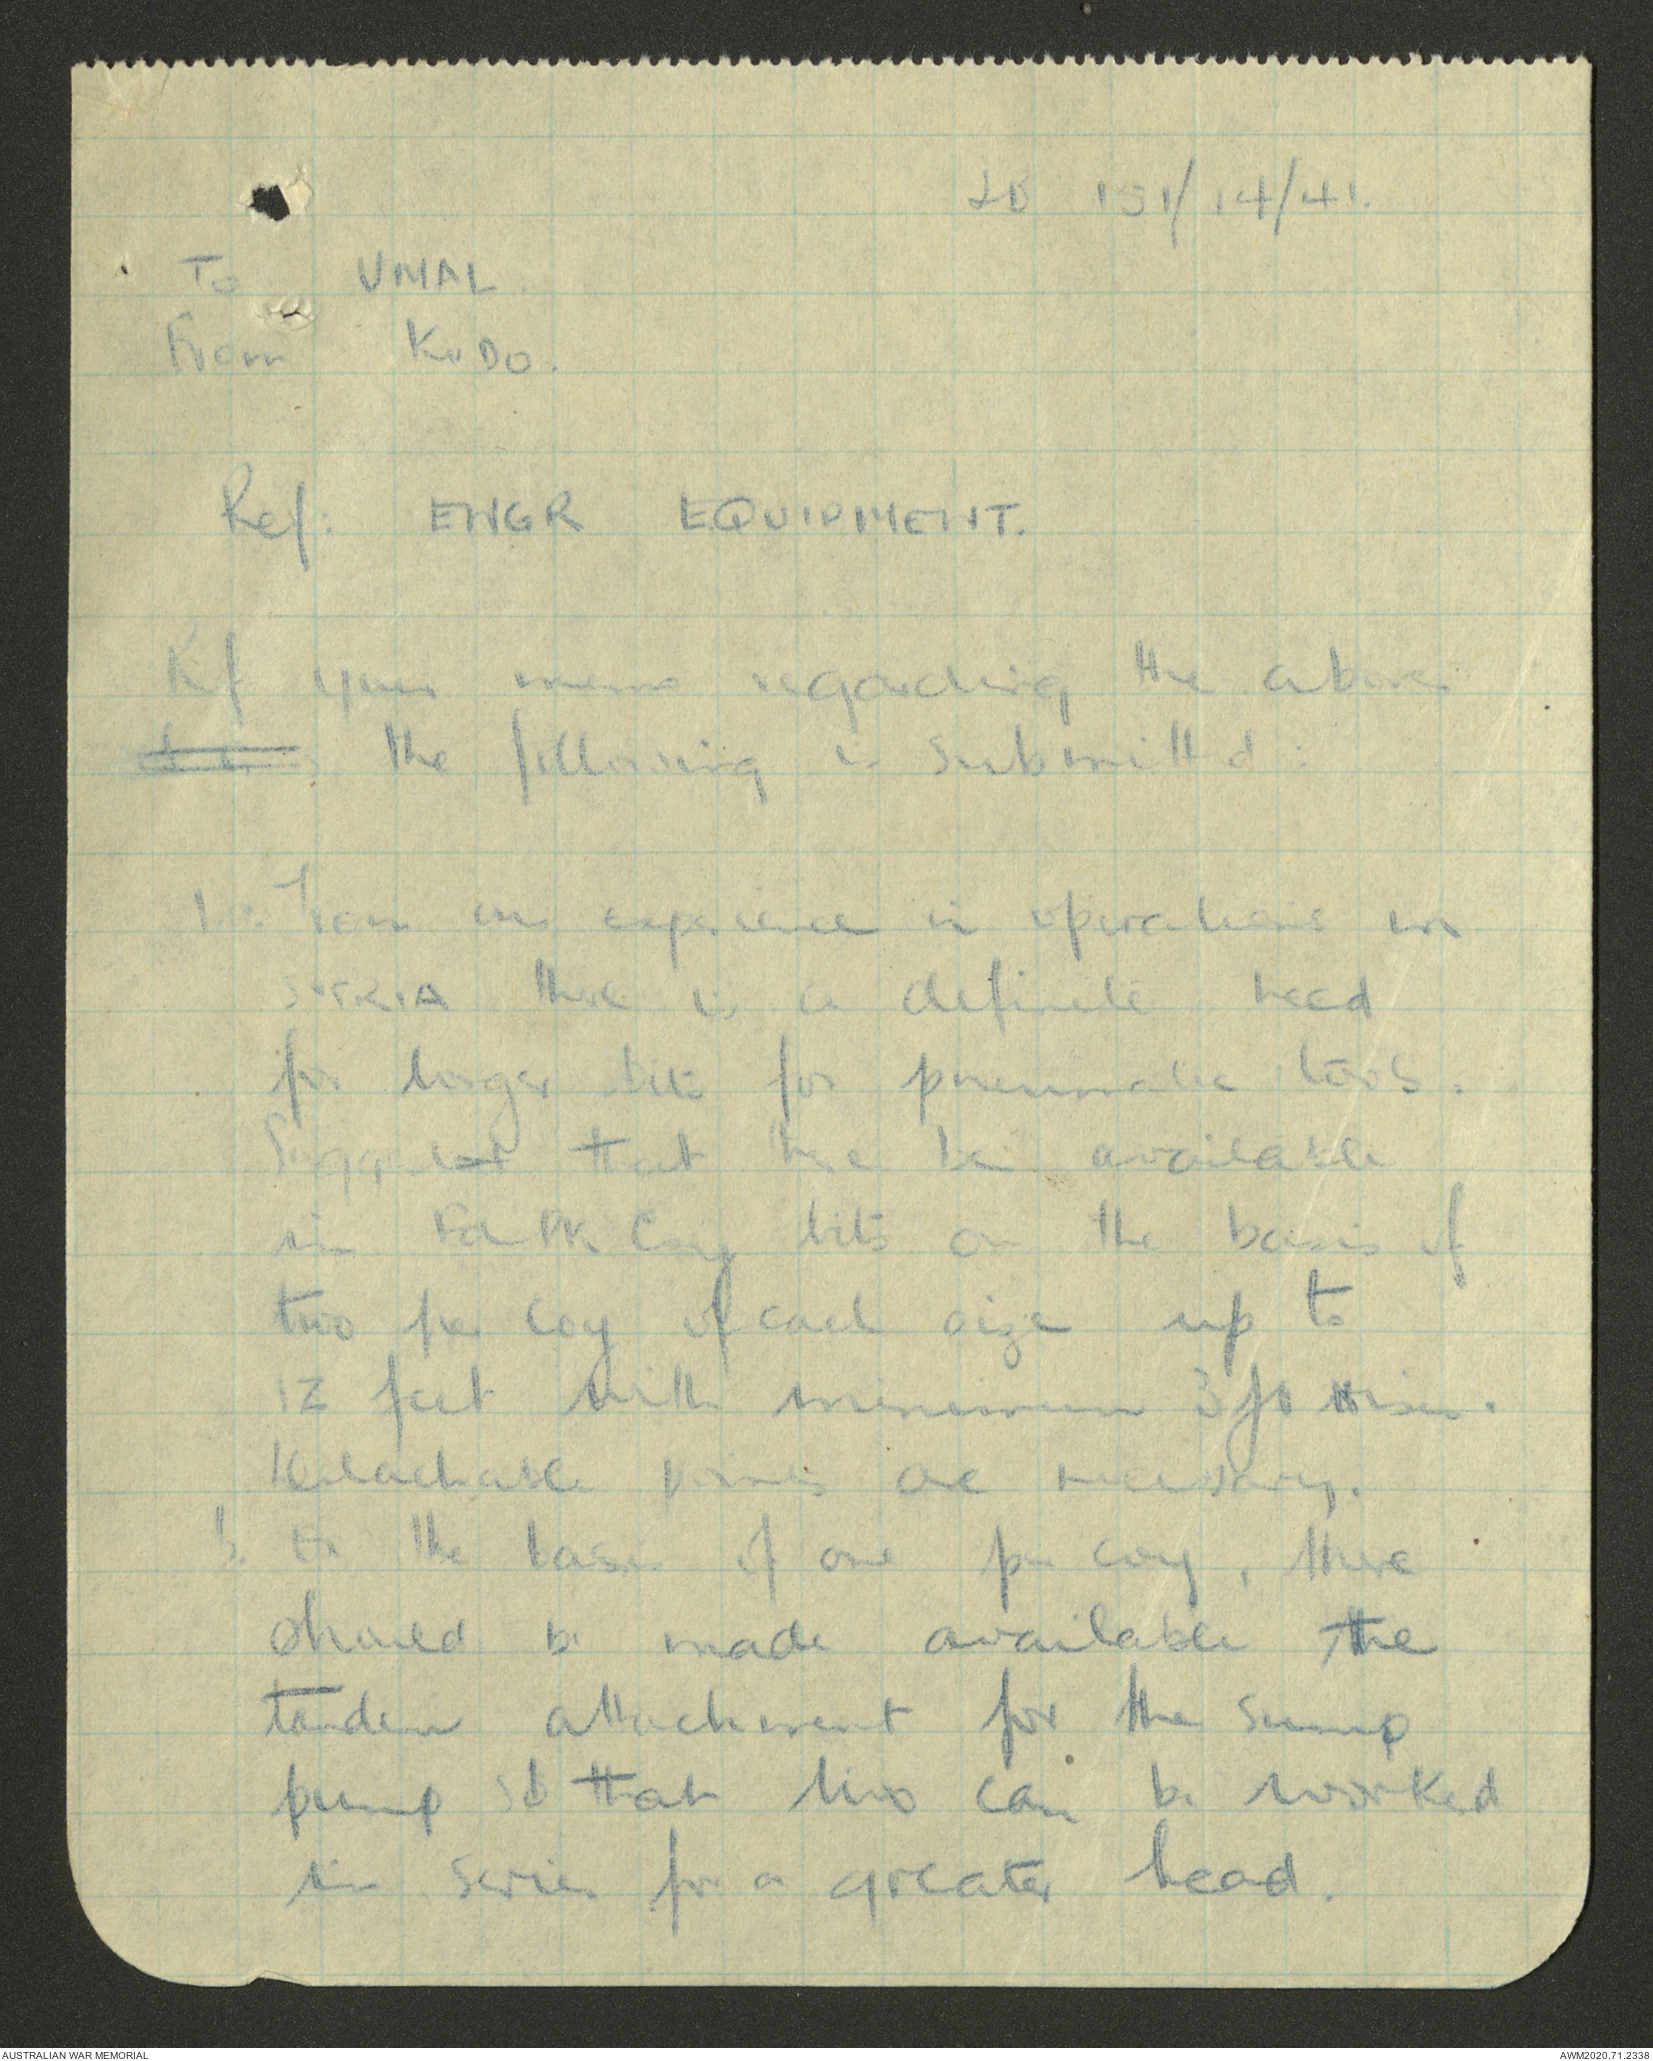 131/14/41.
To UMAL.
From KUDO.
Ref: ENGR EQUIPMENT.
Ref your memo regarding the above
the following is submitted:
1.a. From our experience in operations in
SYRIA there is a definite need
for longer bits for pneumatic tools.
Suggest that there be available
in Fd Pk Coy bits on the basis of
two per coy of each size up to
12 feet with minimum 3 ft
Detachable points are necessary.
b. On the basis of one per coy, there
should be made available the
tandem attachment for the sump
pump so that two can be worked
in series for a greater head.
AUSTRALIAN WAR MEMORIAL
AWM2020.71.2338